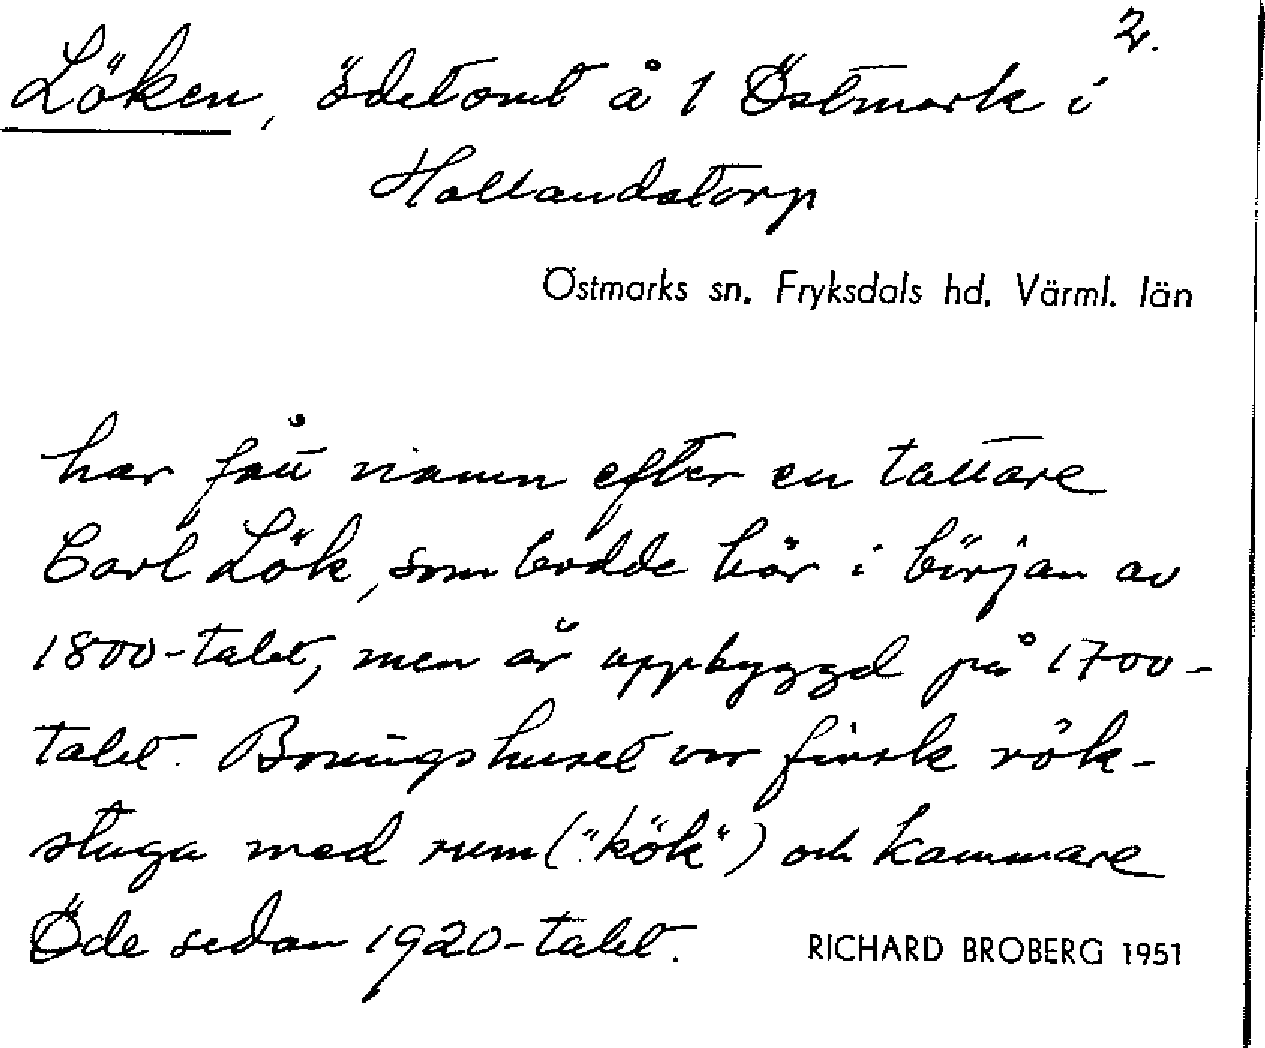 2.
Löken, ödetomt å 1 Östmark i
Hallandstorp
Östmarks sn. Fryksdals hd. Värml. län
har fått namn efter en tattare
Carl Lök, som bodde här i början av
1800-talet, men är uppbyggd på 1700-
talet. Boningshuset var finsk rök-
stuga med rum ("kök") och kammare
Öde sedan 1920-talet.
RICHARD BROBERG 1951